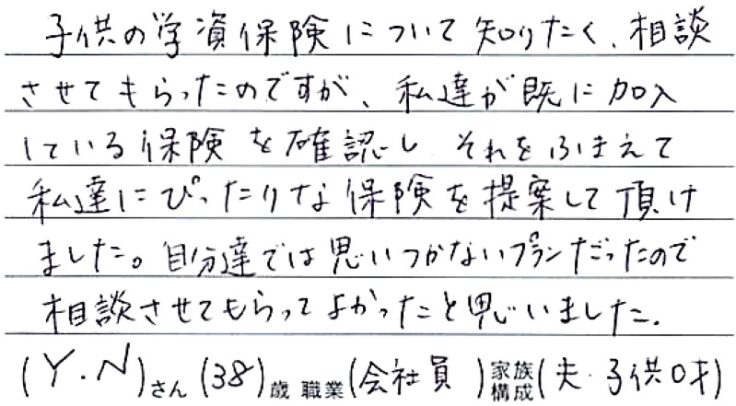 子供の学資保険について知りたく、相談
させてもらったのですが、私達が既に加入
している保険を確認し それをふまえて
私達にぴったりな保険を提案して頂け
ました。自分達では思いつかないプランだったので
相談させてもらってよかったと思いました.
(Y.N)さん(38)歳 職業(会社員 )家族構成(夫・子供0才)